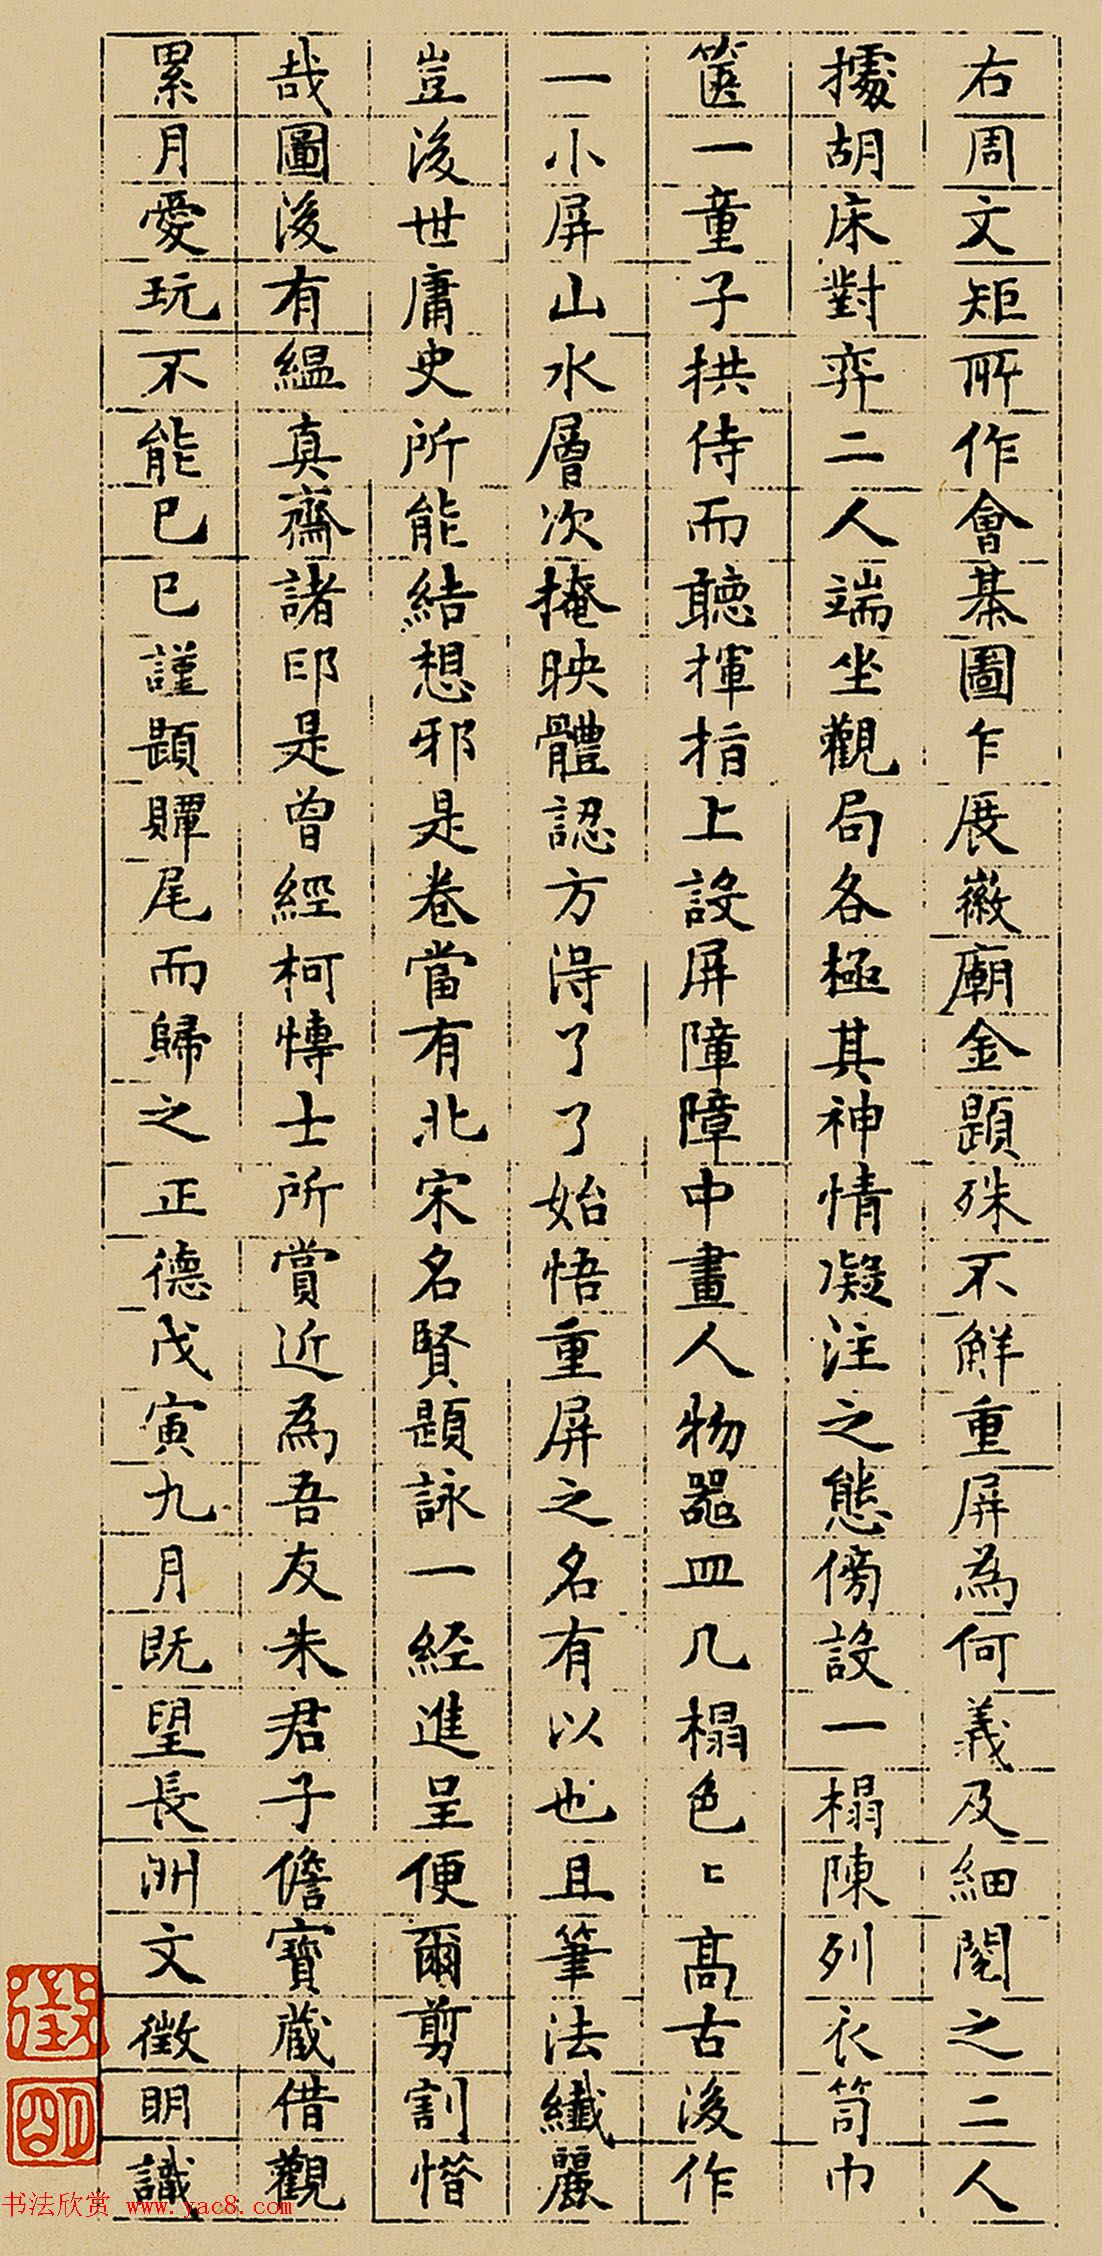 右周文矩所作會棊圖乍展徽廟金題殊不解重屏為何義及細閱之二人
據胡床對弈二人端坐觀局各極其神情凝注之態傍設一榻陳列衣笥巾
篋一童子拱侍而聽揮指上設屏障障中畫人物器皿几榻色〻高古後作
一小屏山水層次掩映體認方得了了始悟重屏之名有以也且筆法纖麗
豈後世庸史所能結想邪是卷當有北宋名賢題詠一經進呈便爾剪割惜
哉圖後有縕真齋諸印是曾經柯博士所賞近為吾友朱君子儋寶藏借觀
累月愛玩不能已已謹題贉尾而歸之正德戊寅九月既望長洲文徵明識
徵
明
书法欣赏 www.yac8.com